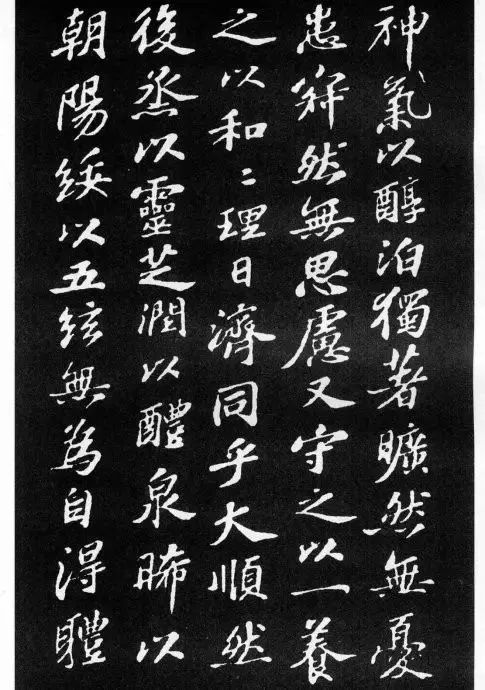 神氣以醇泊獨著曠然無憂
患寂然無思慮又守之以一養
之以和〻理日濟同乎大順然
後烝以靈芝潤以醴泉晞以
朝陽綏以五絃無為自得體